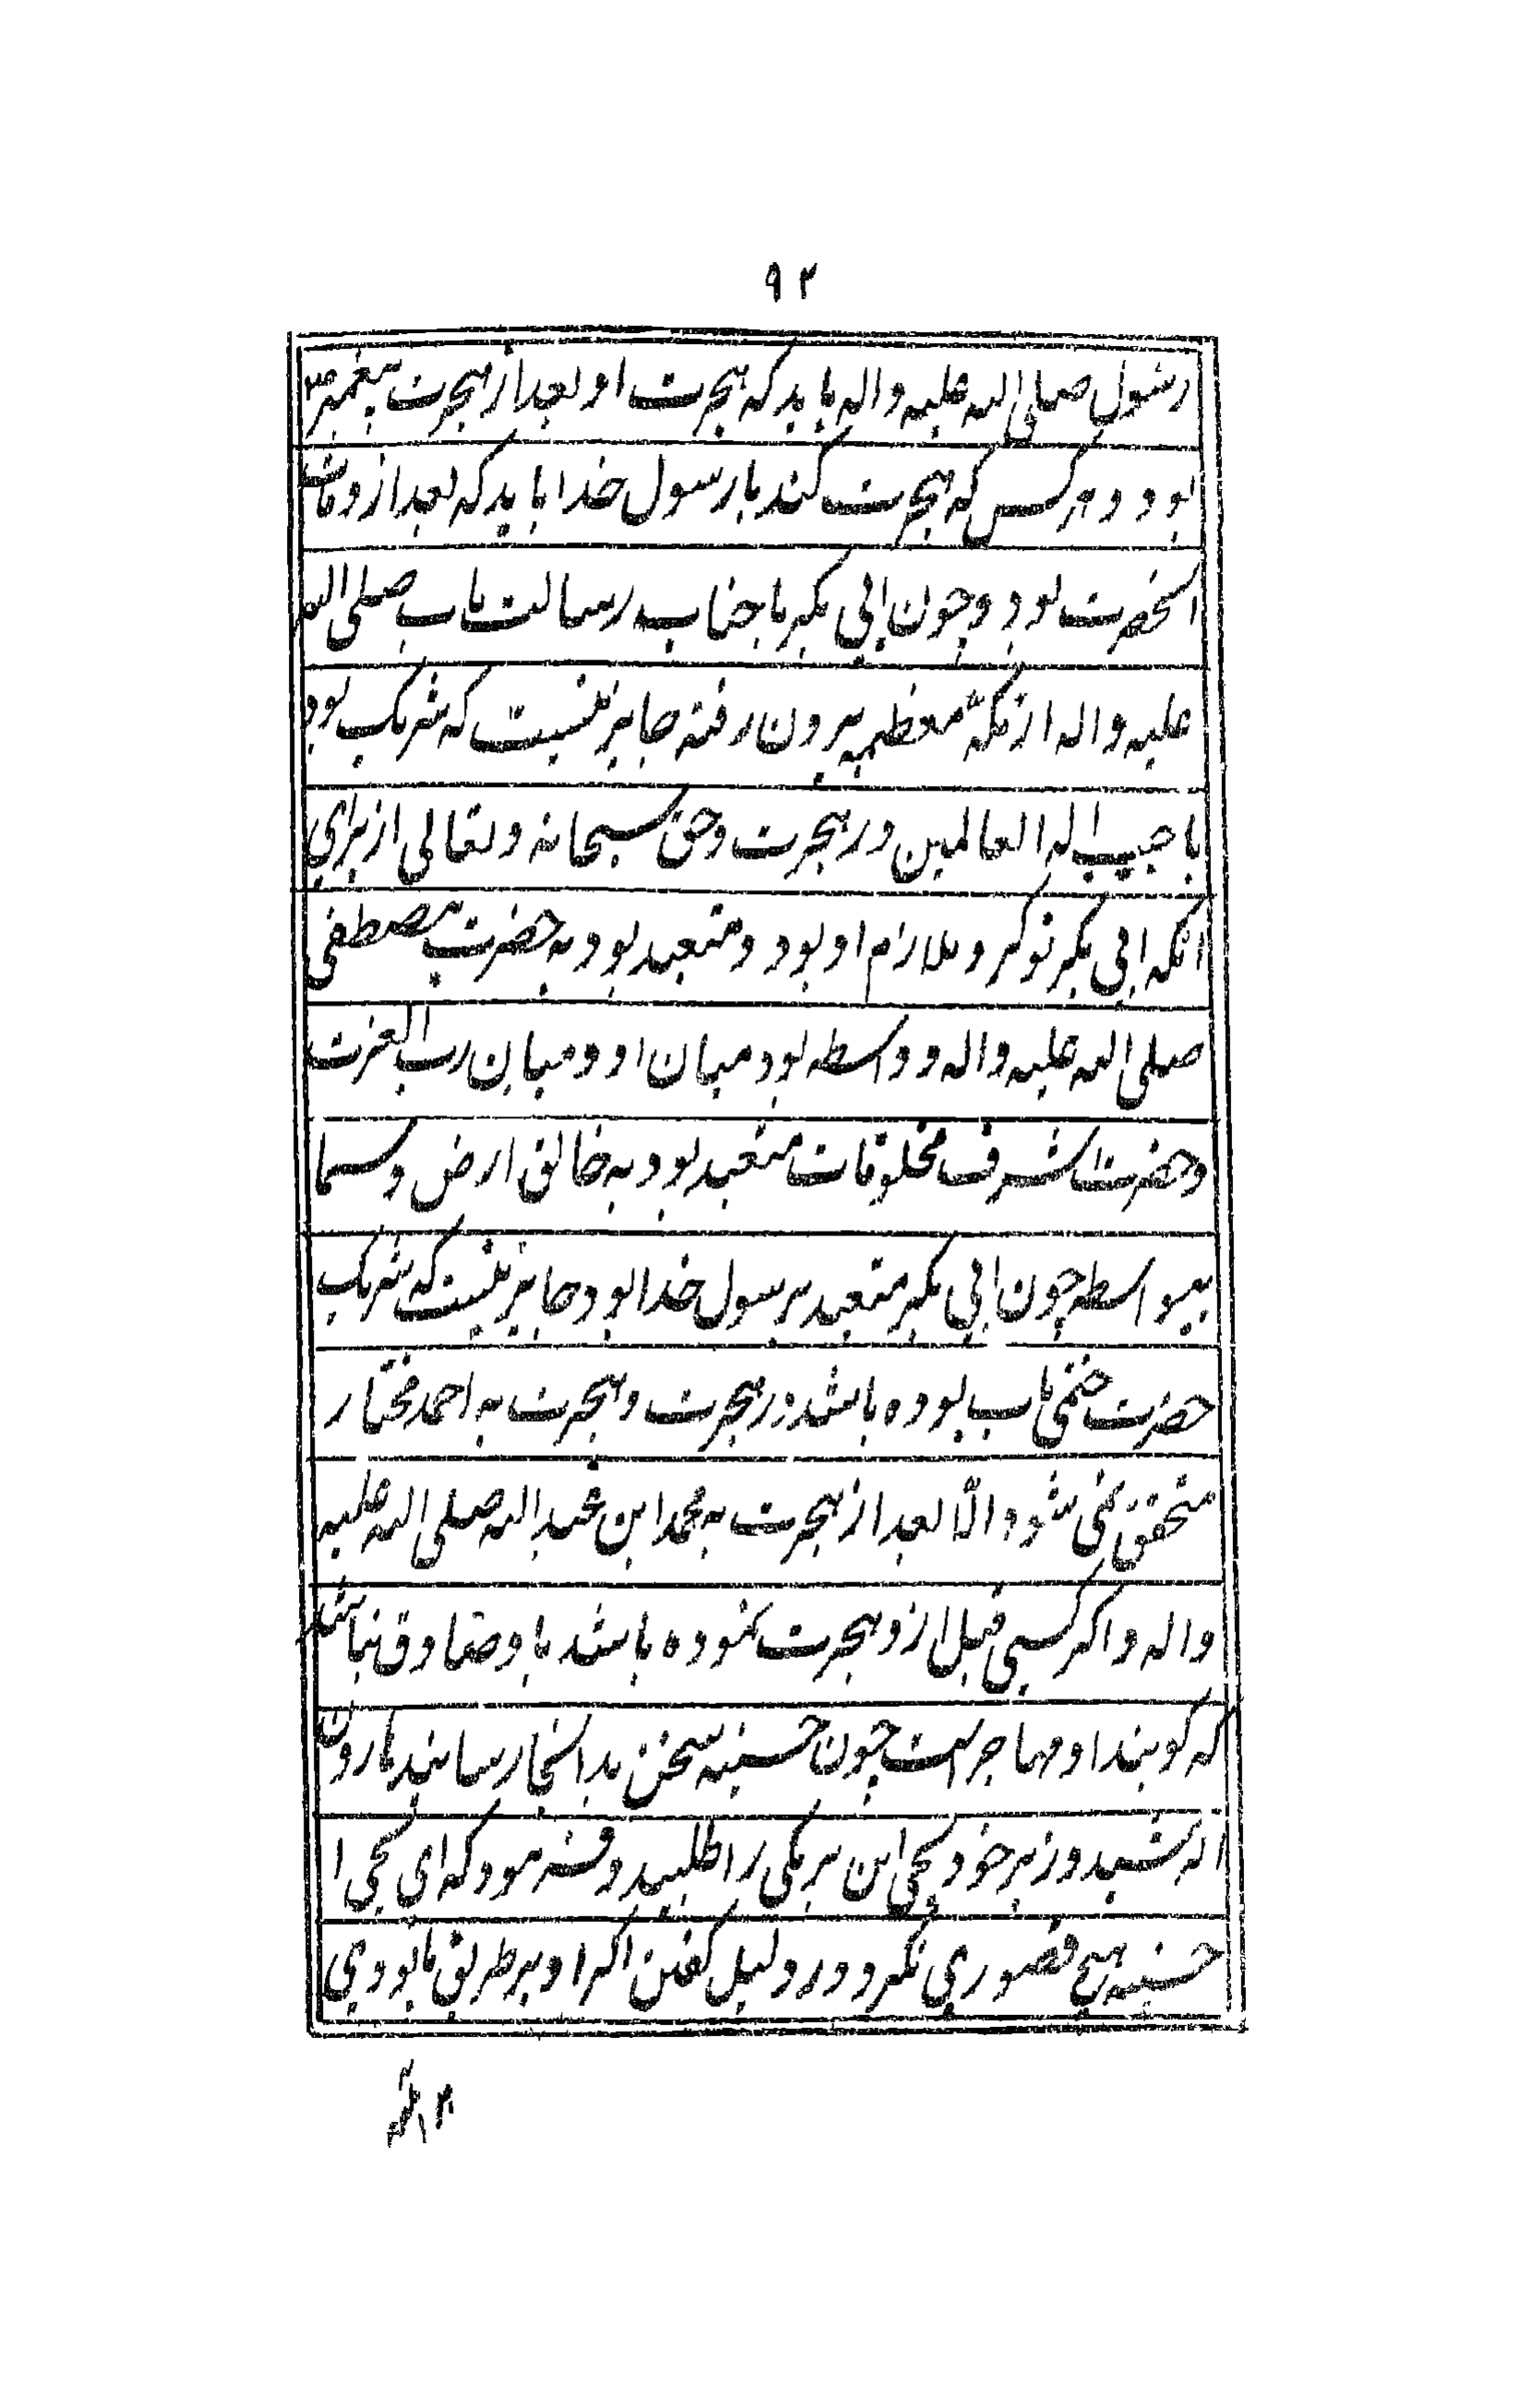 ۹۲
رسول صلی الله علیه واله باید که هجرت او بعد از هجرت پیغمبر ص
بود و هر کس که هجرت کند با رسول خدا باید که بعد از وفات
انحضرت بود و چون ابی بکر با جناب رسالت ماب صلی الله
علیه واله از مکّه معظمه بیرون رفته جایز نیست که شریک بود
با حبیب اله العالمین در هجرت وحق سبحانه وتعالی از برای
انکه ابی بکر نوکر و ملازم او بود و متعبد بود به حضرت مصطفی
صلی الله علیه واله و واسطه بود میان او و میان رب العزت
وحضرت اشرف مخلوقات متعبد بود به خالق ارض وسما
بیواسطه چون ابی بکر متعبد برسول خدا بود جایز نیست که شریک
حضرت ختمی ماب بوده باشد در هجرت وهجرت به احمد مختار
متحقق نمی شود الّا بعد از هجرت به محمد ابن عبدالله صلی الله علیه
واله و اکر کسی قبل از و هجرت نموده باشد با و صادق نباشد
که کویند او مهاجر است چون حسنیه سخن بدانجا رسانید هارون
الرشید وزیر خود یحیی ابن برمکی را طلبید و فرمود که ای یحیی ا
حسنیه هیچ قصوری نکرد و در دلیل کفتن اکر او بر طریق ما بودی